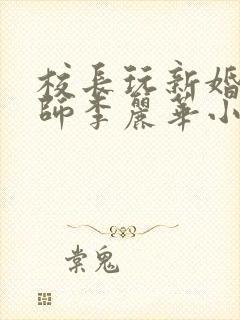 校長玩新婚
師李麗華小
棠鬼